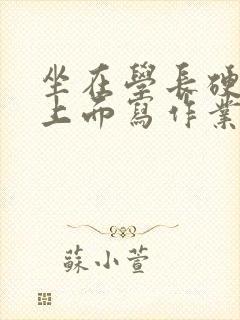 坐在學長硬
上而寫作業
蘇小萱